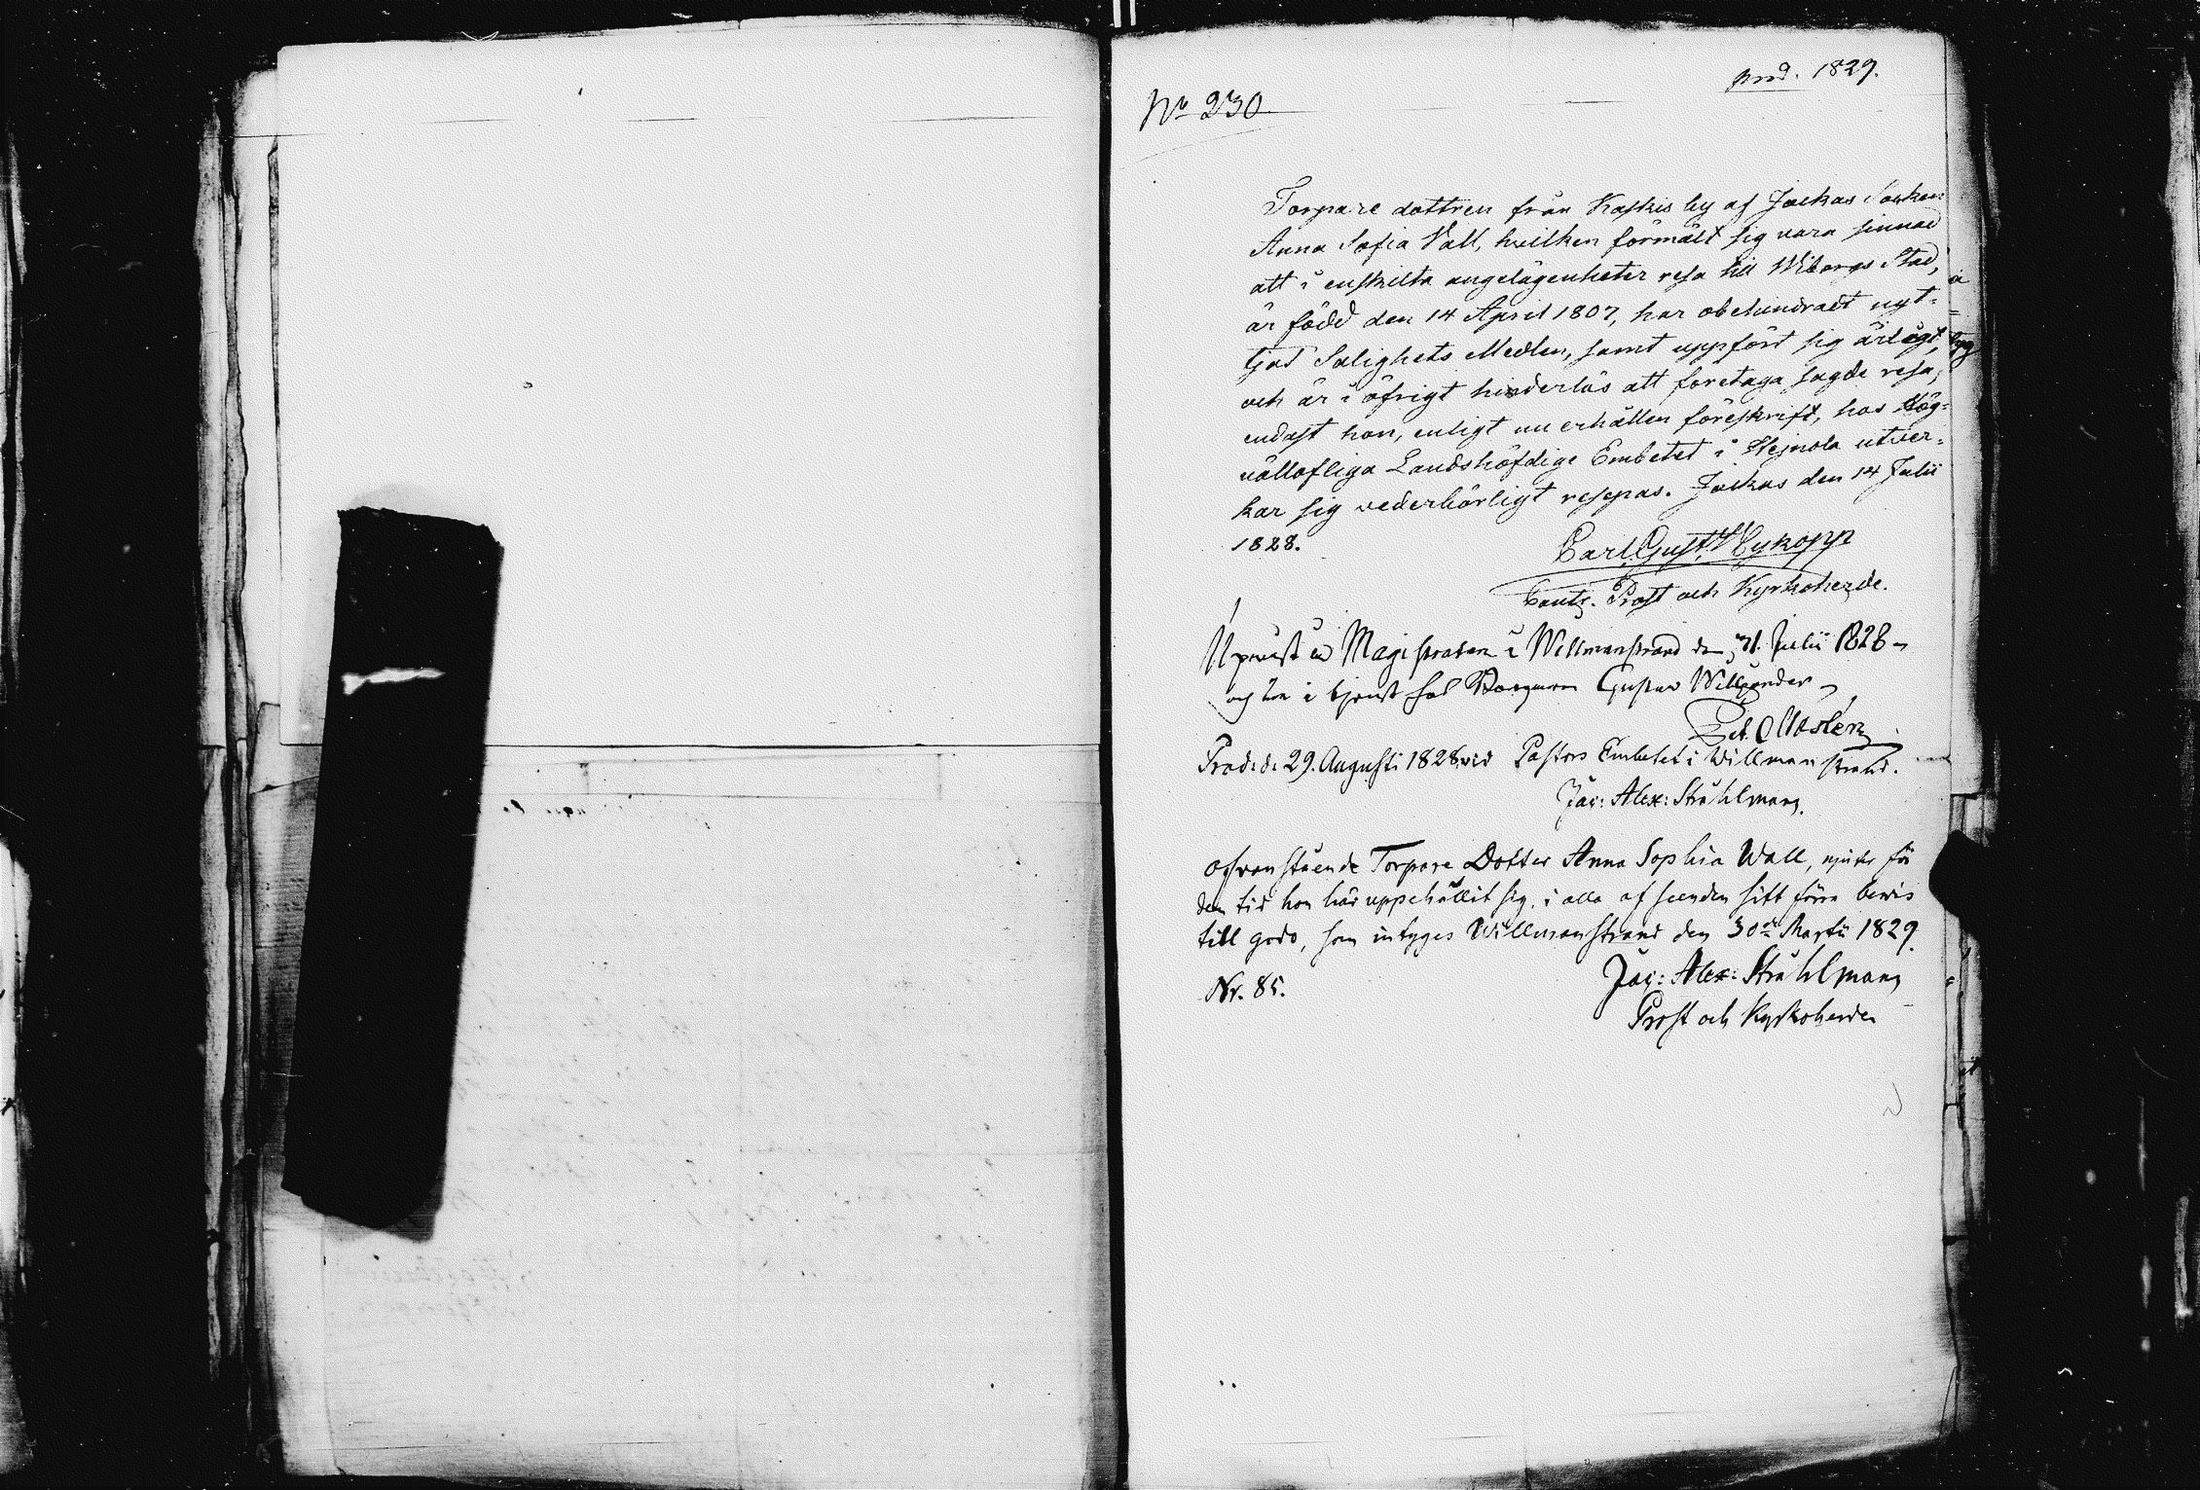 prod. 1829.
No 230.
Torpare dottren från Kaskis by af Jockas Socken
Anna Sofia Vall, hvilken förmält sig vara sinnad
att i enskilta angelägenheter resa till Wiborgs Stad,
är född den 14 April 1807, har obehindradt nyt-
tjat Salighets Medlen, samt uppfört sig ärligt,
och är i öfrigt hinderlös att företaga sagde resa,
endast hon, enligt nu erhållen föreskrift, hos Hög-
vällofliga Landshöfdige Embetet i Hejnola utver-
kar sig vederbörligt respass. Jockas den 14 Julii
1828.
Carl Gust. Wykopp
Contr. Prost och Kyrkoherde.
Upvist i Magistraten i Willmanstrand den 31. Julii 1828
och i tjenst hos Borgaren Gustav
Prod. d. 29. Augusti 1828 vid Pastors Embetet i Willmanstrand.
Jac: Alex: Stråhlman.
Ofvanstående Torpare Dotter Anna Sophia Wall, njuter för
den tid hon här uppehållit sig, i alla afseenden sitt förra bevis
till godo, som intygas Willmanstrand den 30de Martii 1829.
Nr. 85.
Jac: Alex: Stråhlman
Prost och Kyrkoherde